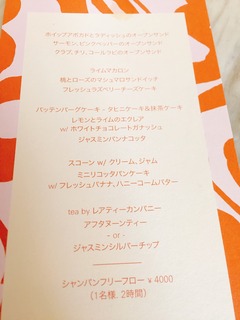 ホイップアボカドとラディッシュのオープンサンド
サーモン、ピンクペッパーのオープンサンド
クラブ、チリ、コールスローのオープンサンド
ライムマカロン
桃とローズのマシュマロサンドイッチ
フレッシュラズベリーチーズケーキ
バッテンバーグケーキ - タヒニケーキ&抹茶ケーキ
レモンとライムのエクレア
w/ ホワイトチョコレートガナッシュ
ジャスミンパンナコッタ
スコーン w/ クリーム、ジャム
ミニリコッタパンケーキ
w/ フレッシュバナナ、ハニーコームバター
tea by レアティーカンパニー
アフタヌーンティー
- or -
ジャスミンシルバーチップ
シャンパンフリーフロー ¥4000
(1名様、2時間)